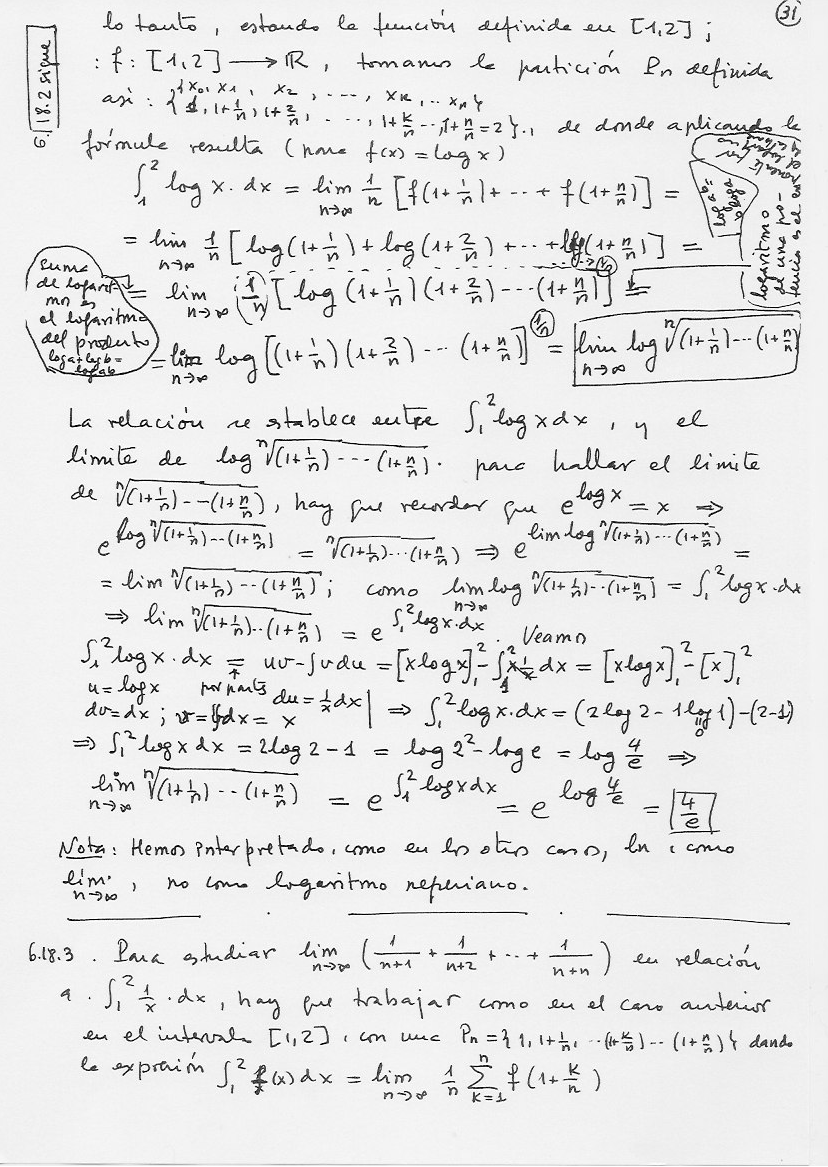 31
6.18.2 sigue
lo tanto, estando la función definida en [1,2];
: f: [1,2] → ℝ, tomamos la partición Pn definida
así: {x₀, x₁, x₂, ..., x_k, .. x_n}
{1, 1+1/n, 1+2/n, ..., 1+k/n ..., 1+n/n = 2}., de donde aplicando la
fórmula resulta (para f(x) = log x)
∫₁² log x · dx = lim_{n→∞} 1/n [f(1+1/n) + ··· + f(1+n/n)] =
= lim_{n→∞} 1/n [log(1+1/n) + log(1+2/n) + ··· + log(1+n/n)] =
= lim_{n→∞} (1/n) [log (1+1/n)(1+2/n) ··· (1+n/n)] =
suma
de logarit-
mo es
el logaritmo
del producto
log a + log b =
log ab
logaritmo
de una po-
tencia es el ex
ponente por
el logaritmo
log aᵇ =
b log a
= lim_{n→∞} log [(1+1/n)(1+2/n) ··· (1+n/n)]^{1/n} = lim_{n→∞} log ⁿ√((1+1/n) ··· (1+n/n))
La relación se establece entre ∫₁² log x dx, y el
límite de log ⁿ√((1+1/n) ···· (1+n/n)). para hallar el límite
de ⁿ√((1+1/n) --- (1+n/n)), hay que recordar que e^{log x} = x ⇒
e^{log ⁿ√((1+1/n)···(1+n/n))} = ⁿ√((1+1/n)···(1+n/n)) ⇒ e^{lim log ⁿ√((1+1/n)···(1+n/n))} =
= lim ⁿ√((1+1/n) --- (1+n/n)); como lim_{n→∞} log ⁿ√((1+1/n)···(1+n/n)) = ∫₁² log x · dx
⇒ lim ⁿ√((1+1/n)···(1+n/n)) = e^{∫₁² log x · dx}. Veamos
∫₁² log x · dx = uv - ∫v du = [x log x]₁² - ∫₁² x 1/x dx = [x log x]₁² - [x]₁²
u = log x por partes du = 1/x dx
dv = dx; v = ∫dx = x | ⇒ ∫₁² log x · dx = (2 log 2 - 1 log 1) - (2-1)
0
⇒ ∫₁² log x dx = 2 log 2 - 1 = log 2² - log e = log 4/e ⇒
lim_{n→∞} ⁿ√((1+1/n) ··· (1+n/n)) = e^{∫₁² log x dx} = e^{log 4/e} = 4/e
Nota: Hemos interpretado, como en los otros casos, ln, como
lim_{n→∞}, no como logaritmo neperiano.
6.18.3. Para estudiar lim_{n→∞} (1/(n+1) + 1/(n+2) + ··· + 1/(n+n)) en relación
a. ∫₁² 1/x · dx, hay que trabajar como en el caso anterior
en el intervalo [1,2], con una Pn = {1, 1+1/n, ··· (1+k/n) ··· (1+n/n)} dando
la expresión ∫₁² f(x) dx = lim_{n→∞} 1/n ∑_{k=1}^{n} f(1+k/n)